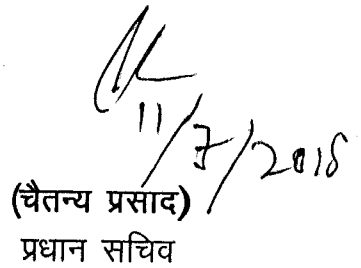 11/7/2018
(चैतन्य प्रसाद)
प्रधान सचिव